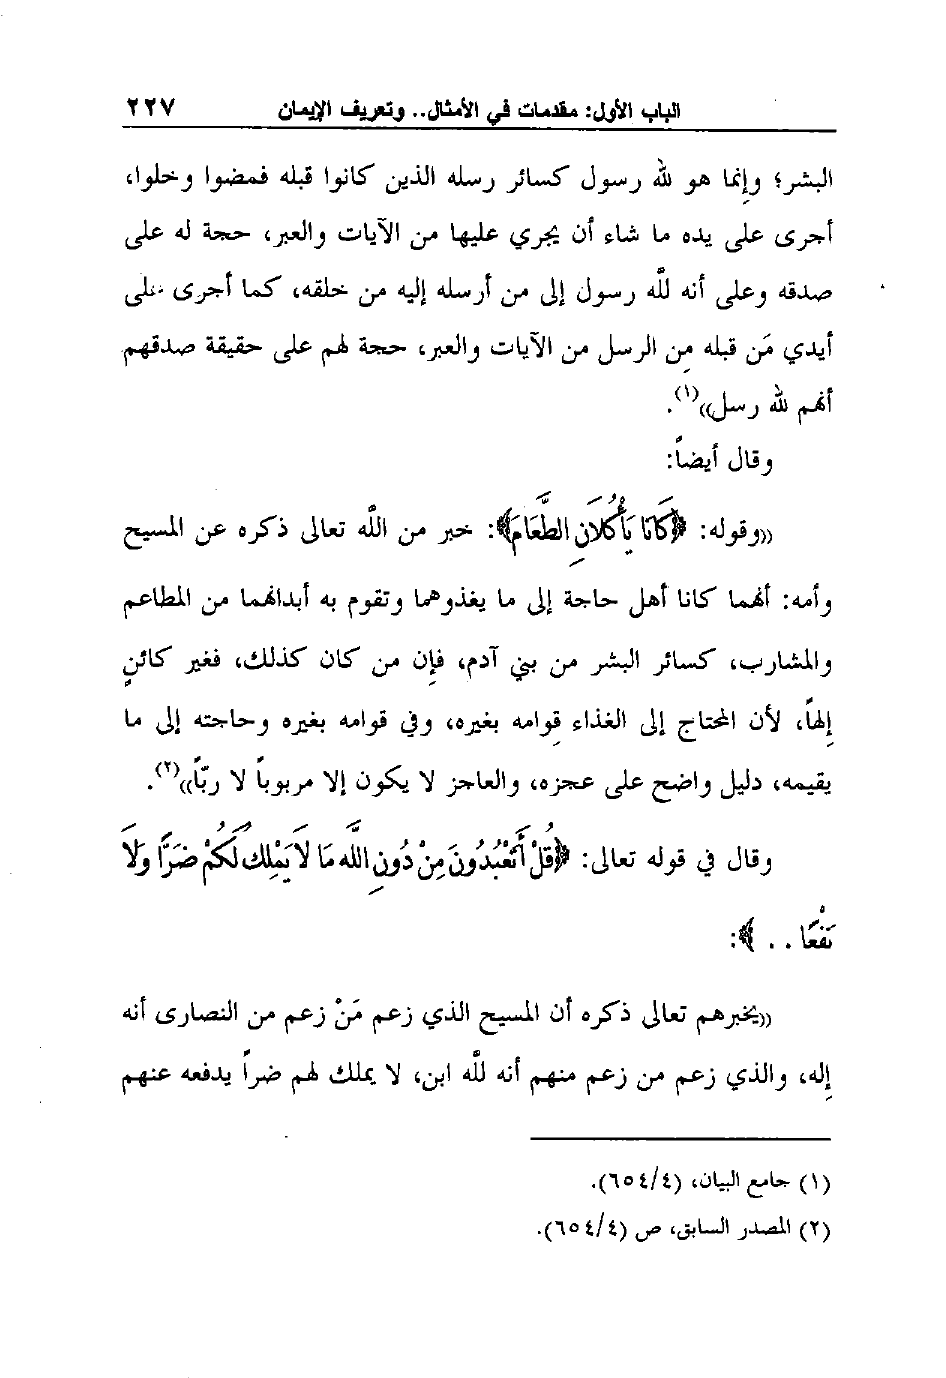 الباب الأول: مقدمات في الأمثال.. وتعريف الإيمان ٢٢٧
البشر؛ وإنما هو لله رسول كسائر رسله الذين كانوا قبله فمضوا وخلوا،
أجرى على يده ما شاء أن يجري عليها من الآيات والعبر، حجة له على
صدقه وعلى أنه لله رسول إلى من أرسله إليه من خلقه، كما أجرى على
أيدي مَن قبله مِن الرسل من الآيات والعبر، حجة لهم على حقيقة صدقهم
أنهم لله رسل))(١).
وقال أيضاً:
((وقوله: ﴿كَانَا يَأْكُلَانِ الطَّعَامَ﴾: خبر من الله تعالى ذكره عن المسيح
وأمه: أنهما كانا أهل حاجة إلى ما يغذوهما وتقوم به أبدانهما من المطاعم
والمشارب، كسائر البشر من بني آدم، فإن من كان كذلك، فغير كائنٍ
إلهاً، لأن المحتاج إلى الغذاء قِوامه بغيره، وفي قوامه بغيره وحاجته إلى ما
يقيمه، دليل واضح على عجزه، والعاجز لا يكون إلا مربوباً لا ربّاً))(٢).
وقال في قوله تعالى: ﴿قُلْ أَتَعْبُدُونَ مِنْ دُونِ اللَّهِ مَا لَا يَمْلِكُ لَكُمْ ضَرًّا وَلَا
نَفْعًا . . ﴾:
((يخبرهم تعالى ذكره أن المسيح الذي زعم مَنْ زعم من النصارى أنه
إله، والذي زعم من زعم منهم أنه لله ابن، لا يملك لهم ضراً يدفعه عنهم
(١) جامع البيان، (٦٥٤/٤).
(٢) المصدر السابق، ص (٦٥٤/٤).